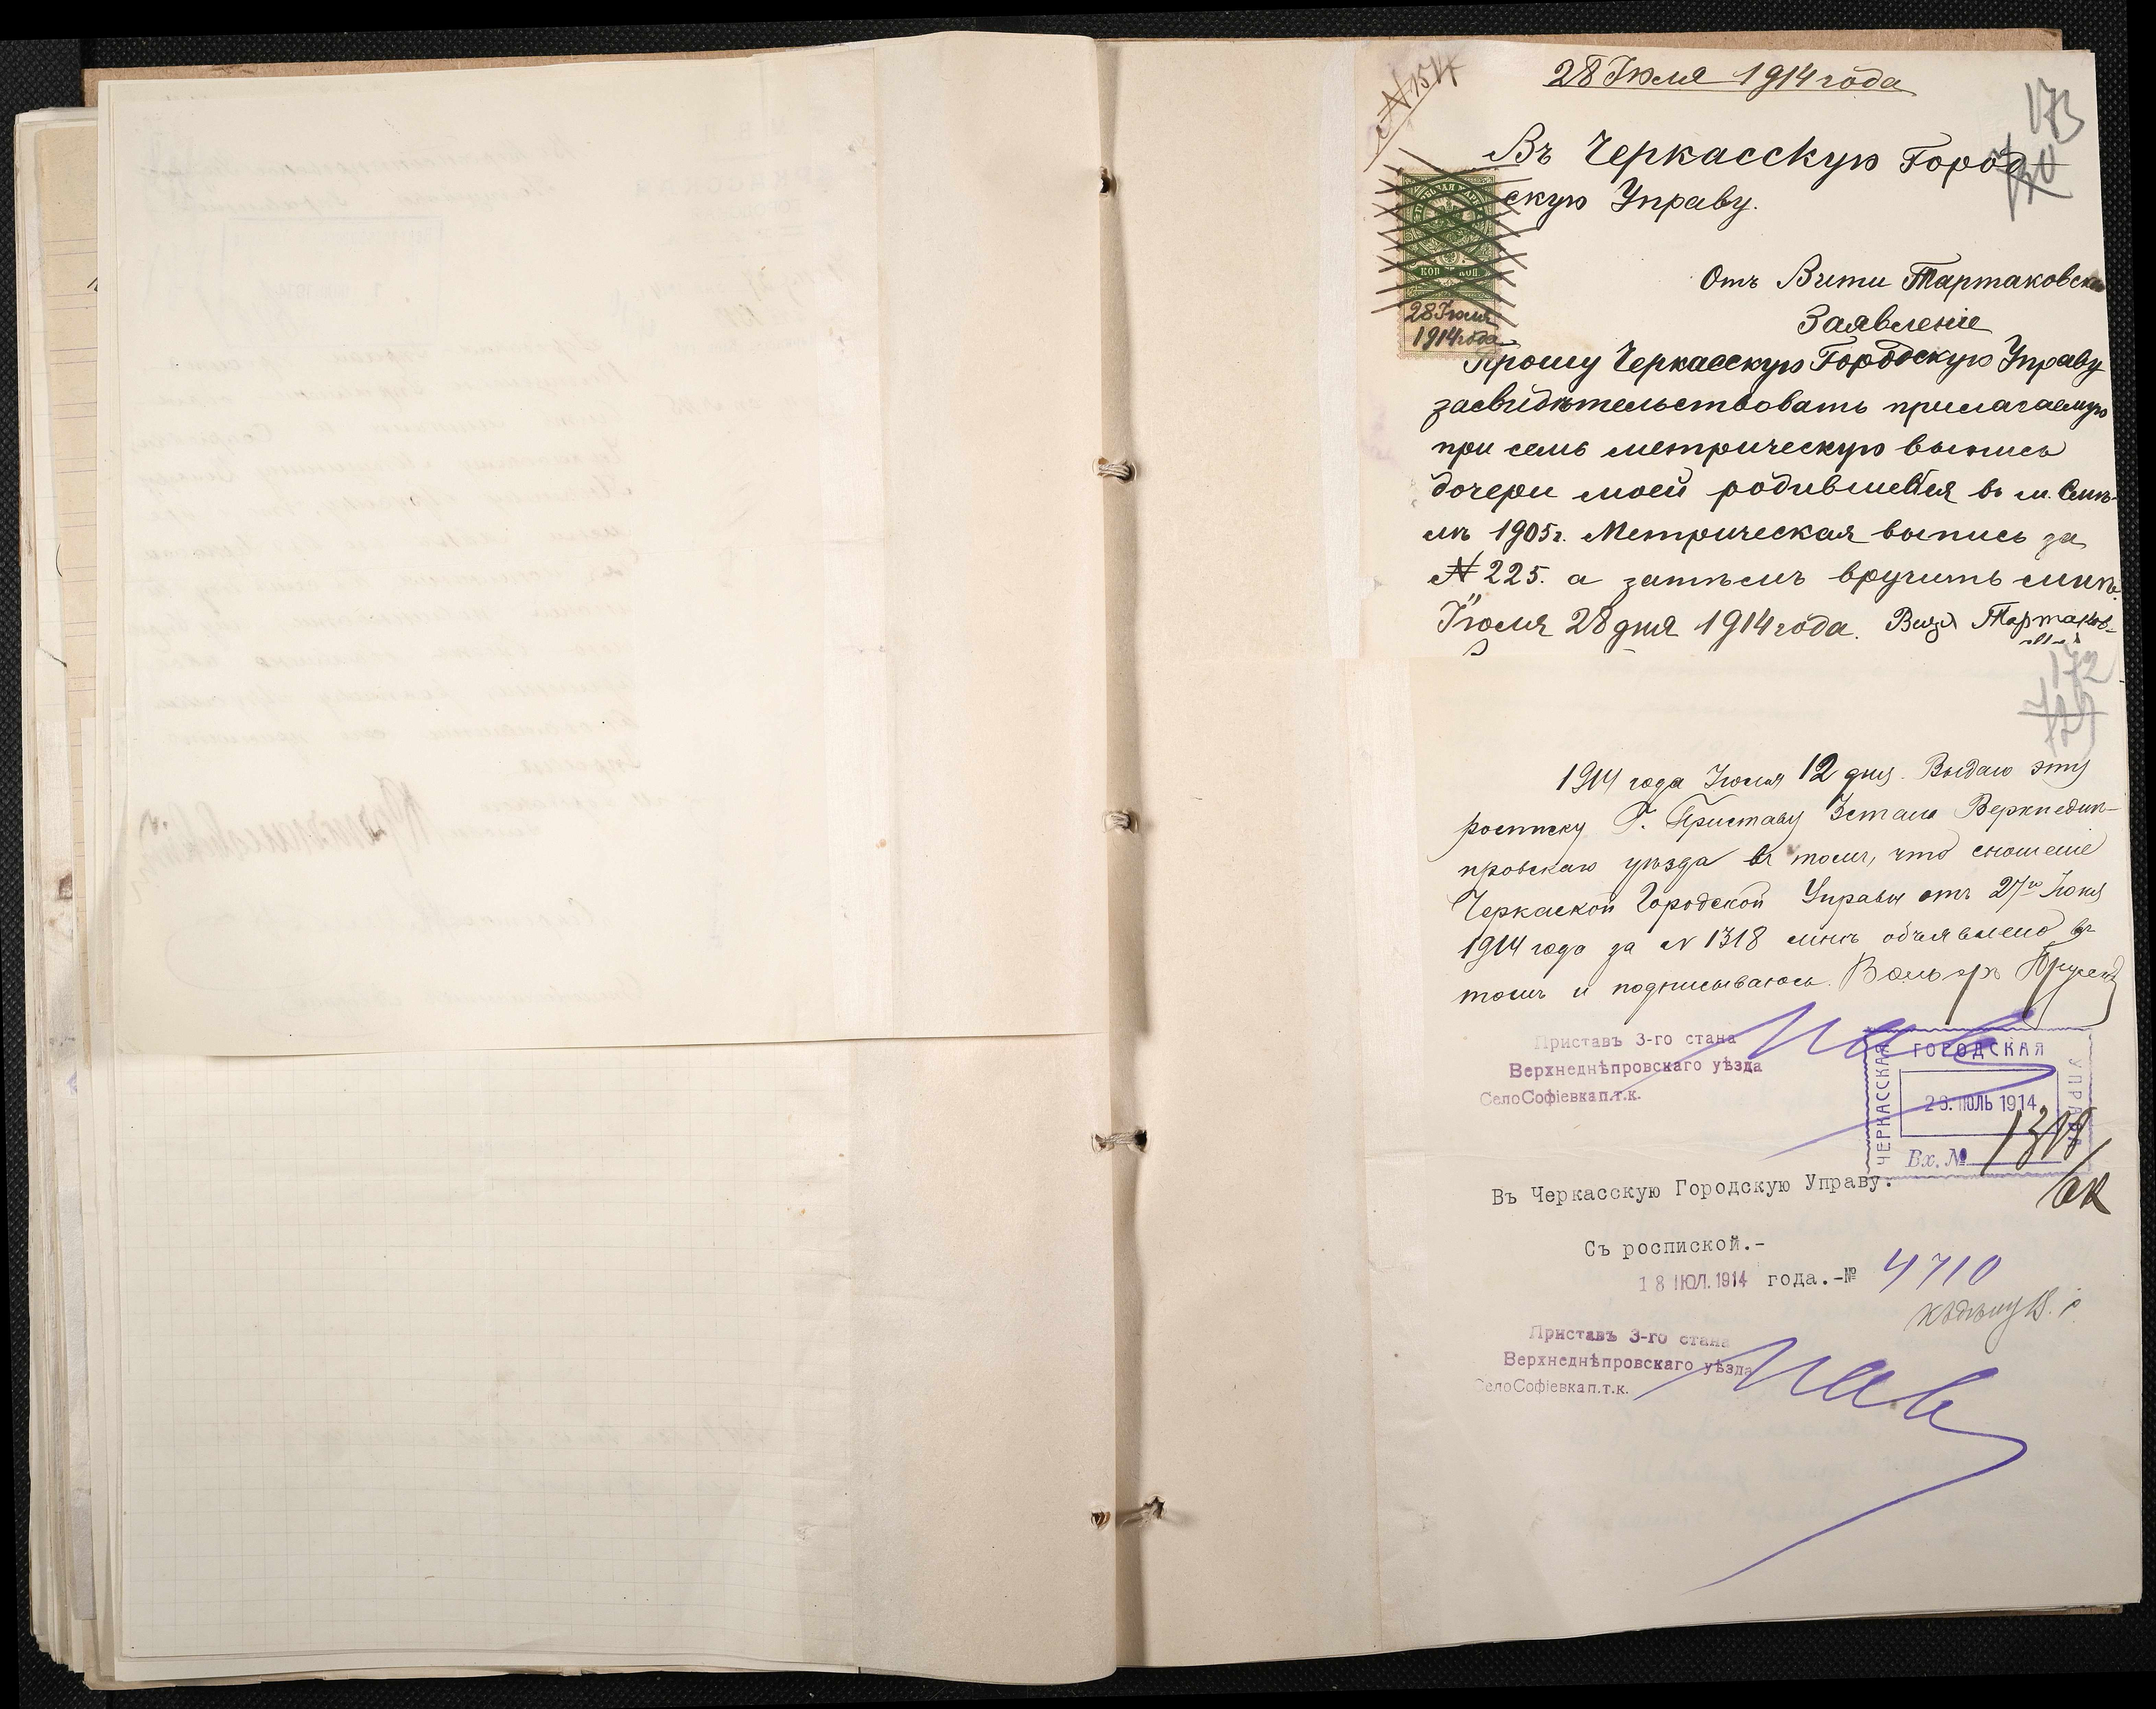 № 1514
28 Іюля 1914 года
173
Въ Черкасскую Город
скую Управу.
28 Іюля
1914 года
Отъ Тартаковск
Заявленіе
Прошу Черкасскую Городскую Управу
засвидѣтельствовать прилагаемую
при семъ метрическую выпись
дочери моей родившейся въ м. Смѣ-
лѣ 1905 г. Метрическая выпись за
№ 225. а затѣмъ вручить мнѣ.
Іюля 28 дня 1914 года. Тартаков-
172
129
1914 года Іюля 12 дня. Выдаю эту
росписку Г. Приставу 3 стана Верхнедне-
провскаго уѣзда въ томъ, что сношеніе
Черкаской Городской Управы отъ 27го Іюня
1914 года за № 1318 мнѣ объявлено въ
томъ и подписываюсь.
Приставъ 3-го стана
Верхнеднѣпровскаго уѣзда
Село Софіевка п.т.к.
ЧЕРКАССКАЯ
ГОРОДСКАЯ
УПРАВА
ІЮЛЬ 1914
Вх. №
Въ Черкасскую Городскую Управу.
Съ роспиской.-
18 ІЮЛ. 1914 года.-№ 4710
Приставъ 3-го стана
Верхнеднѣпровскаго уѣзда
Село Софіевка п.т.к.